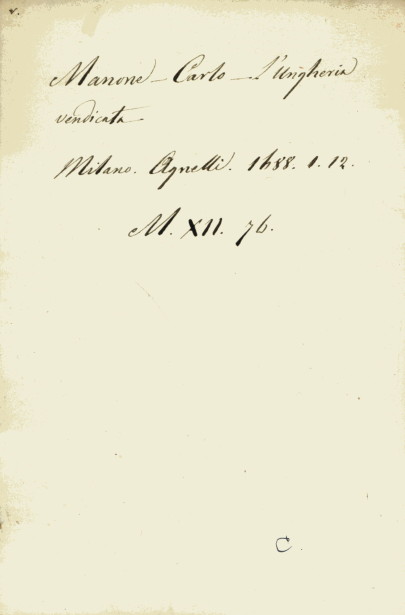 v.
Manone - Carlo - L'Ungheria
vendicata
Milano. Agnelli. 1688. 1. 12.
M. XII. 76.
C.